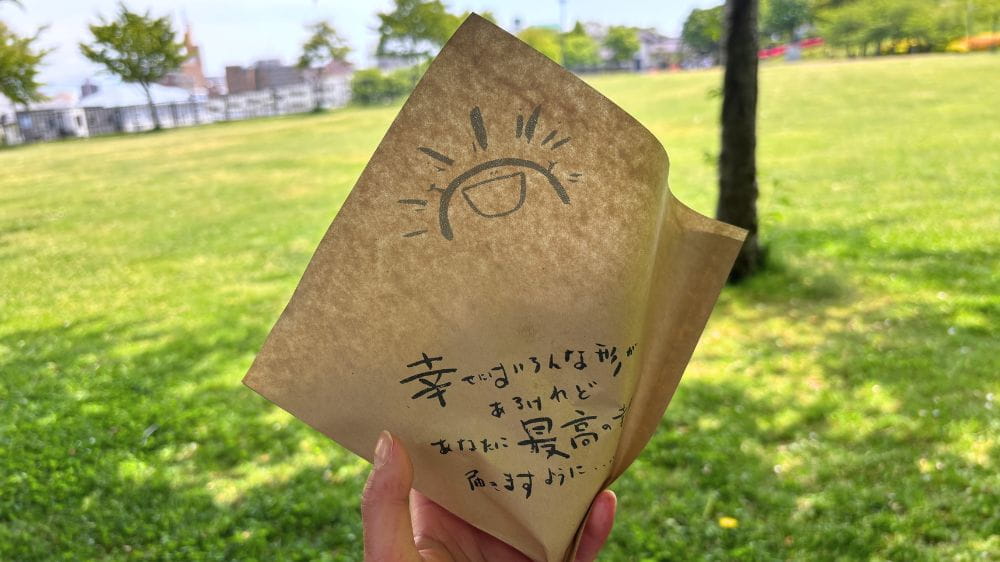 幸せにはいろんな形が
あるけれど
あなたに最高の
届きますように...